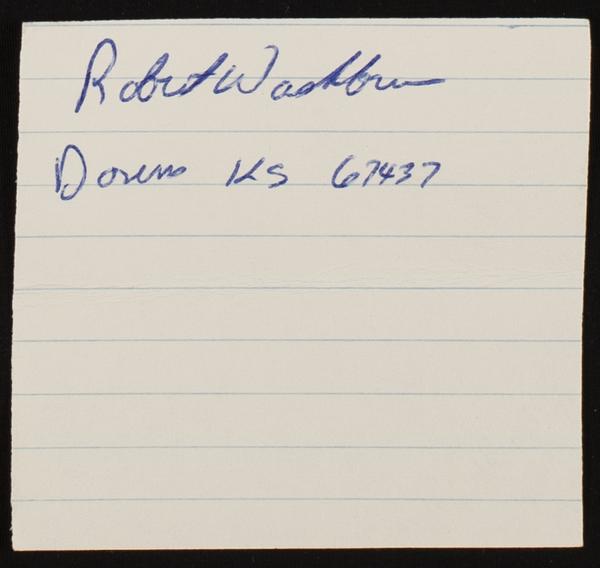 Robert Washburn
Downs KS 67437